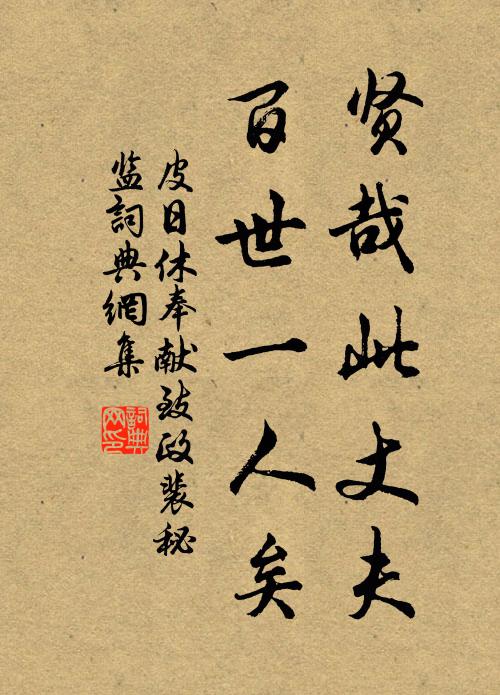 贤哉此丈夫
百世一人矣
皮日休奉献致政裴秘
监詞典網集
詞典网印